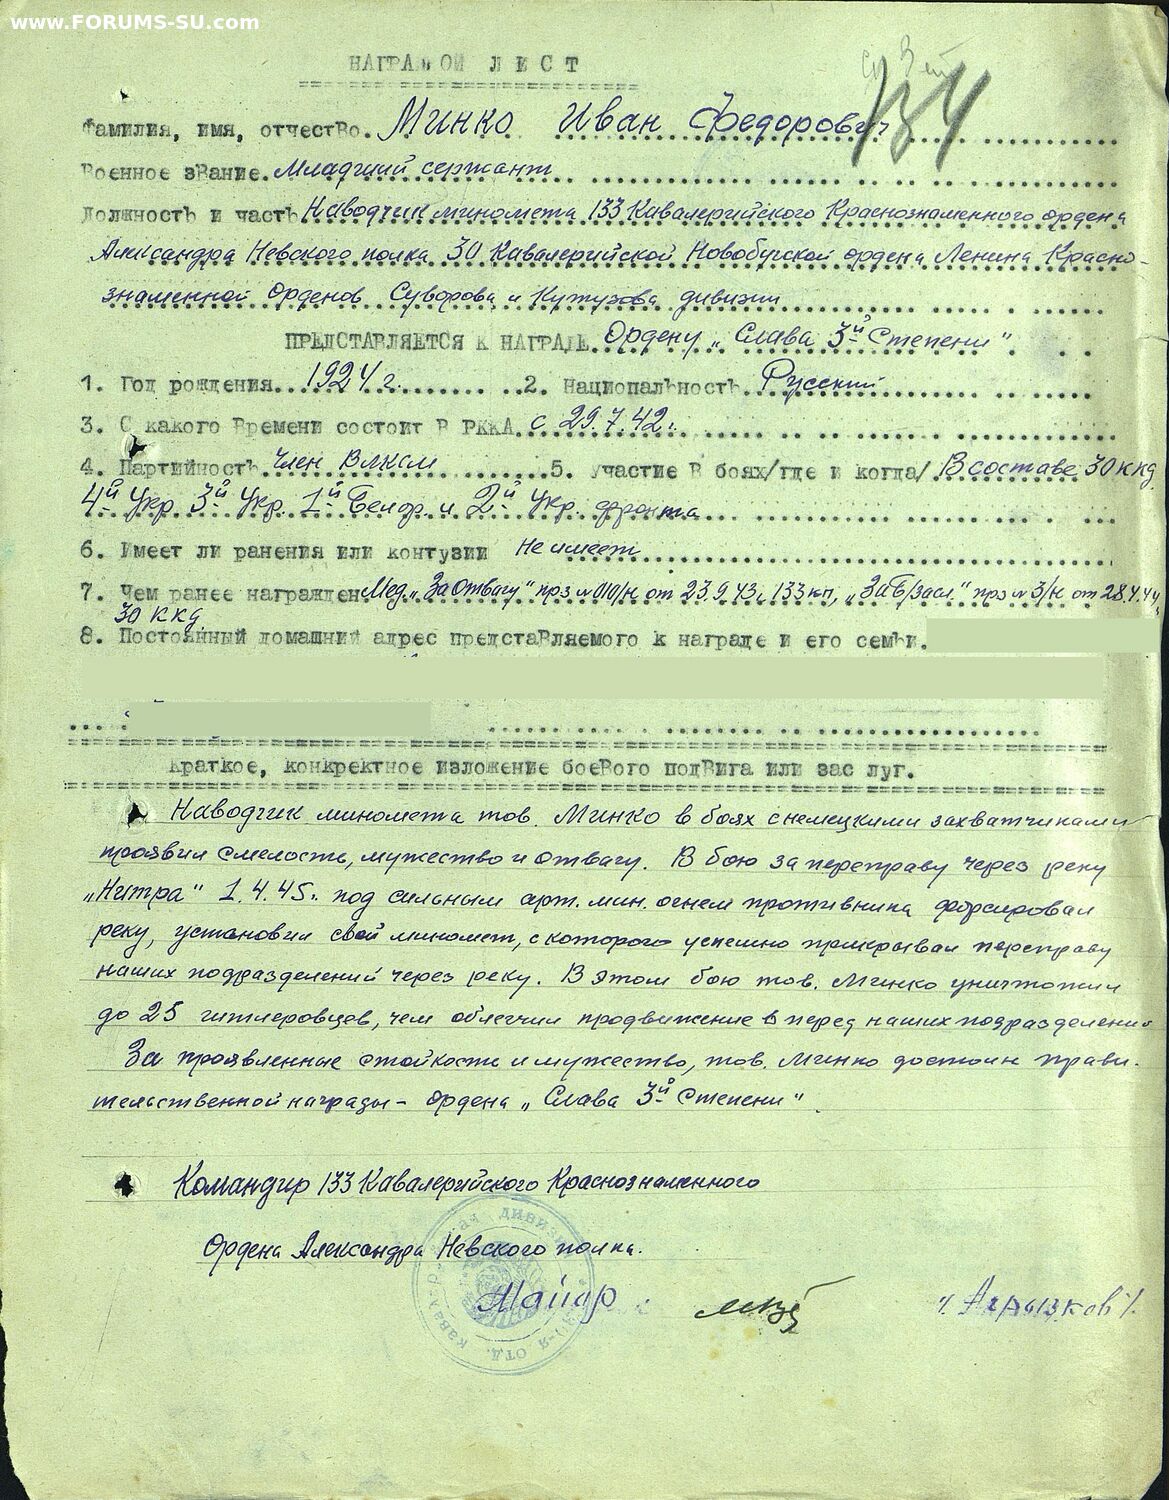 www.FORUMS-SU.com
НАГРАДНОЙ ЛИСТ
134
Фамилия, имя, отчество. Минко Иван Федорович
Военное звание. Младший сержант
Должность и часть Наводчик миномета 133 Кавалерийского Краснознаменного ордена
Александра Невского полка 30 Кавалерийской Новобугской ордена Ленина Красно-
знаменной Орденов Суворова и Кутузова дивизии
ПРЕДСТАВЛЯЕТСЯ К НАГРАДЕ Ордену „Слава 3й Степени"
1. Год рождения 1924 г. 2. Национальность Русский
3. С какого времени состоит в РККА с 29.7.42г.
4. Партийность Член ВЛКСМ 5. участие в боях/где и когда/ В составе 30 ккд
4й Укр. 3й Укр. 1й Белор. и 2й Укр. фронта
6. Имеет ли ранения или контузии Не имеет
7. Чем ранее награжден Мед. „За Отвагу" прз № 010/н от 23.9.43г. 133 кп, „За Б/засл." прз № 3/н от 28.4.44г.
30 ккд
8. Постоянный домашний адрес представляемого к награде и его семьи.
Краткое, конкректное изложение боевого подвига или зас луг.
Наводчик миномета тов. Минко в боях с немецкими захватчиками
проявил смелость, мужество и отвагу. В бою за переправу через реку
„Нитра" 1.4.45г. под сильным арт. мин. огнем противника форсировал
реку, установил свой миномет, с которого успешно прикрывал переправу
наших подразделений через реку. В этом бою тов. Минко уничтожил
до 25 гитлеровцев, чем облегчил продвижение вперед наших подразделений
За проявленные стойкость и мужество, тов. Минко достоин прави-
тельственной награды - ордена „Слава 3й Степени"
Командир 133 Кавалерийского Краснознаменного
Ордена Александра Невского полка.
Майор /Агрызков/.
кавалерийская дивизия 30-я отд.